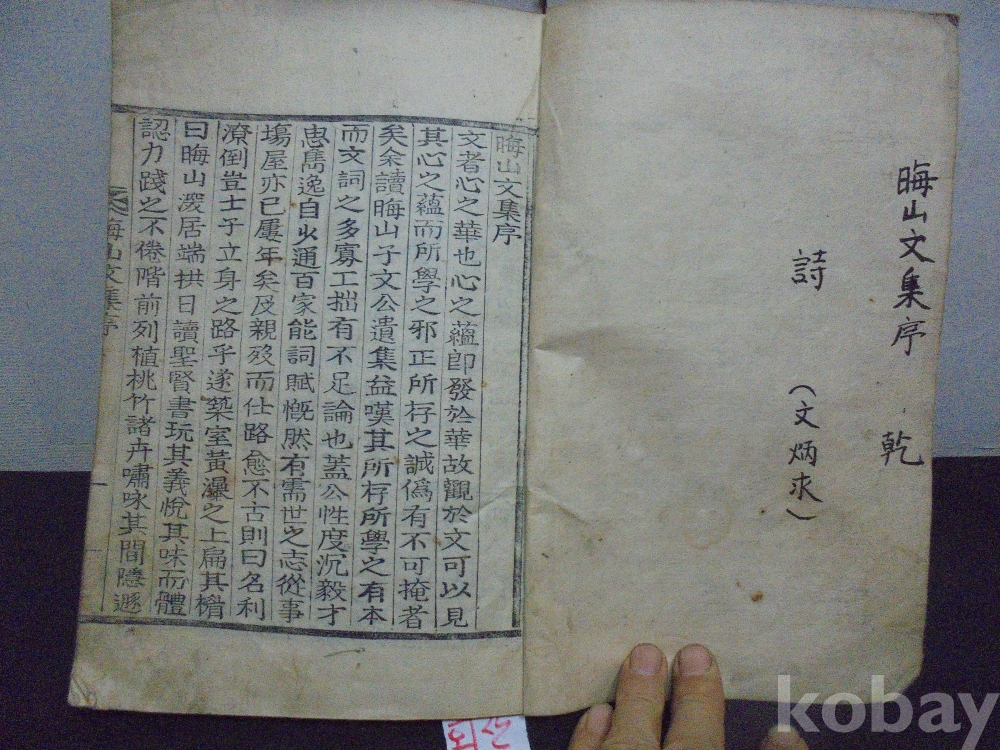 晦山文集序 乾
詩 (文炳求)
晦山文集序
文者心之華也心之蘊即發於華故觀於文可以見
其心之蘊而所學之邪正所存之誠僞有不可掩者
矣余讀晦山子文公遺集益嘆其所存所學之有本
而文詞之多寡工拙有不足論也蓋公性度沉毅才
思雋逸自少通百家能詞賦慨然有需世之志從事
場屋亦已屢年矣及親歿而仕路愈不古則曰名利
潦倒豈士子立身之路乎遂築室黃瀑之上扁其楣
曰晦山渡居端拱日讀聖賢書玩其義悅其味而體
認力踐之不倦階前列植桃竹諸卉嘯咏其間隱遯
晦山文集序
一
kobay